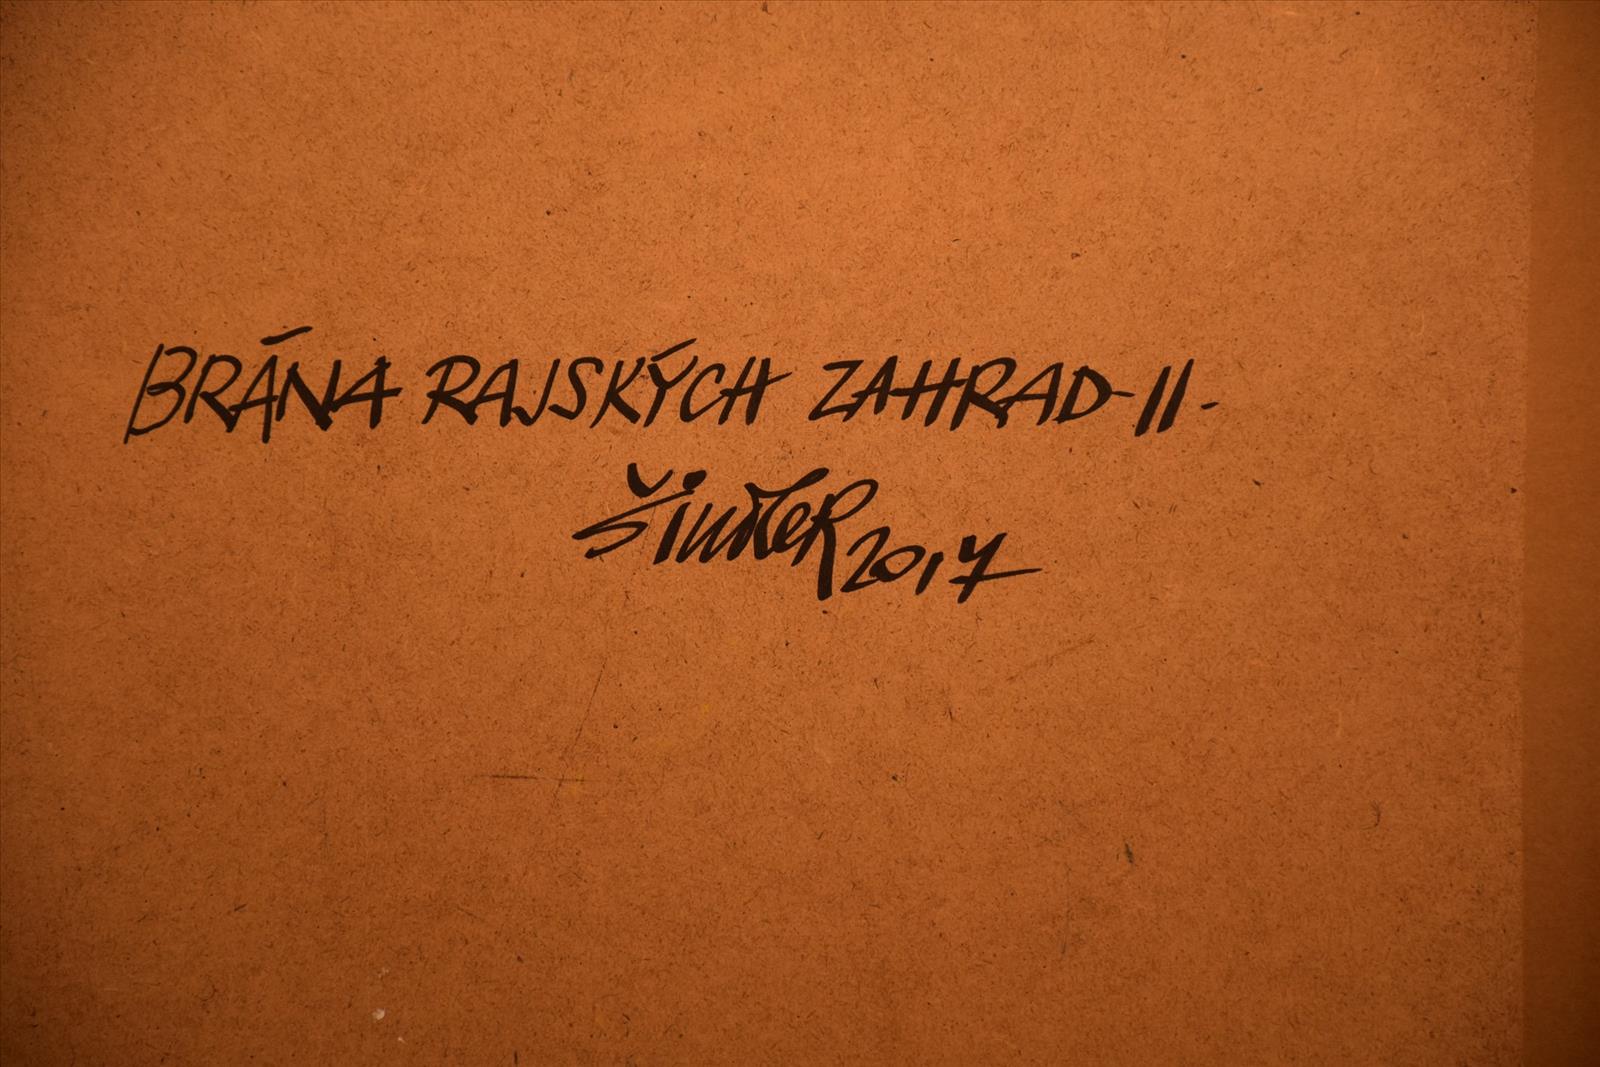 BRÁNA RAJSKÝCH ZAHRAD-II-
ŠINDLER 2017